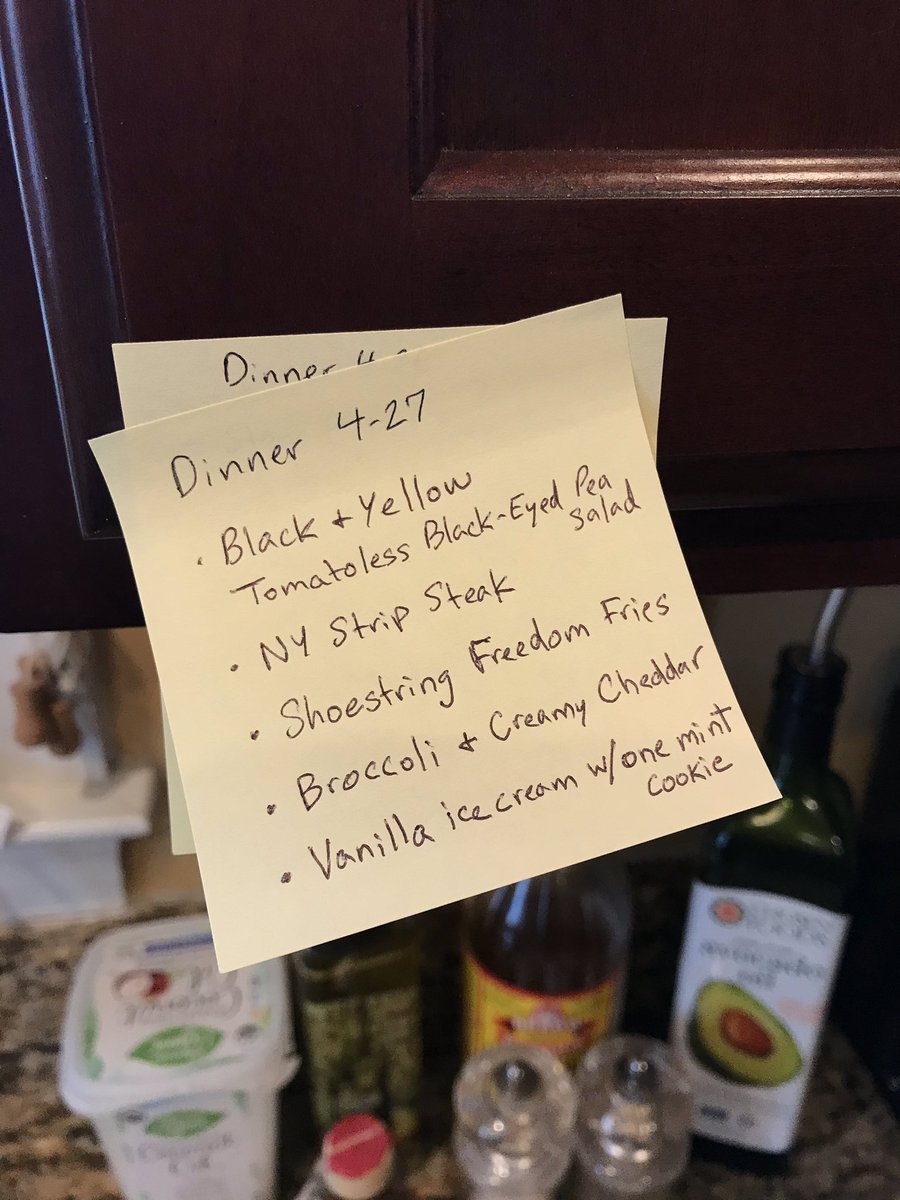 Dinner
Dinner 4-27
• Black + Yellow
Tomatoless Black-Eyed Pea
Salad
• NY Strip Steak
• Shoestring Freedom Fries
• Broccoli + Creamy Cheddar
• Vanilla ice cream w/one mint
cookie